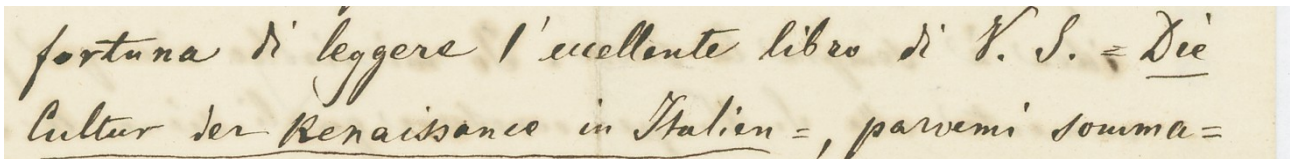 fortuna di leggere l'eccellente libro di V. S. = Die
Cultur der Renaissance in Italien =, parvemi somma=